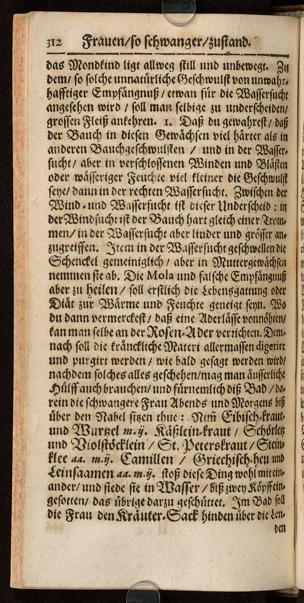 312 Frauen/so schwanger/zustand.
das Mondkind ligt allweg still und unbewegt. Zu
dem/ so solche unnatürliche Geschwulst von unwahr-
hafftiger Empfängnuß/ etwan für die Wassersucht
angesehen wird/ soll man selbige zu underscheiden/
grossen Fleiß ankehren. 1. Daß du gewahrest/ daß
der Bauch in diesen Gewächsen viel härter als in
anderen Bauchgeschwulsten/ und in der Wasser-
sucht/ aber in verschlossenen Winden und Blästen
oder wässeriger Feuchte viel kleiner die Geschwulst
seye/ dann in der rechten Wassersucht. Zwischen der
Wind- und Wassersucht ist dieser Underscheid: in
der Windsucht ist der Bauch hart gleich einer Trom-
men/ in der Wassersucht aber linder und grösser an-
zugreiffen. Item in der Wassersucht geschwellen die
Schenckel gemeiniglich/ aber in Muttergewächsen
nemmen sie ab. Die Mola und falsche Empfängnuß
aber zu heilen/ soll erstlich die Lebensgattung oder
Diät zur Wärme und Feuchte geneigt seyn. Wo
du dann vermerckest/ daß eine Aderlässe vonnöhten/
kan man selbe an der Rosen-Ader verrichten. Dem-
nach soll die kränckliche Materi allermassen digerirt
und purgirt werden/ wie bald gesagt werden wird/
nachdem solches alles geschehen/ mag man äusserliche
Hülff auch brauchen/ und fürnemlich diß Bad/ da-
rein die schwangere Frau Abends und Morgens biß
über den Nabel sitzen thue: Nim Eibisch-kraut
und Wurtzel m.ij. Käßlein-kraut/ Schörletz
und Violstöcklein/ St. Peterskraut/ Stein-
klee aa. m.ij. Camillen/ Griechisch-heu und
Leinsaamen aa. m.ij. stoß diese Ding wohl mit ein-
ander/ und siede sie in Wasser/ biß zwey Köpff ein-
gesotten/ das übrige darzu geschüttet. Im Bad soll
die Frau den Kräuter-Sack hinden über die Len-
den